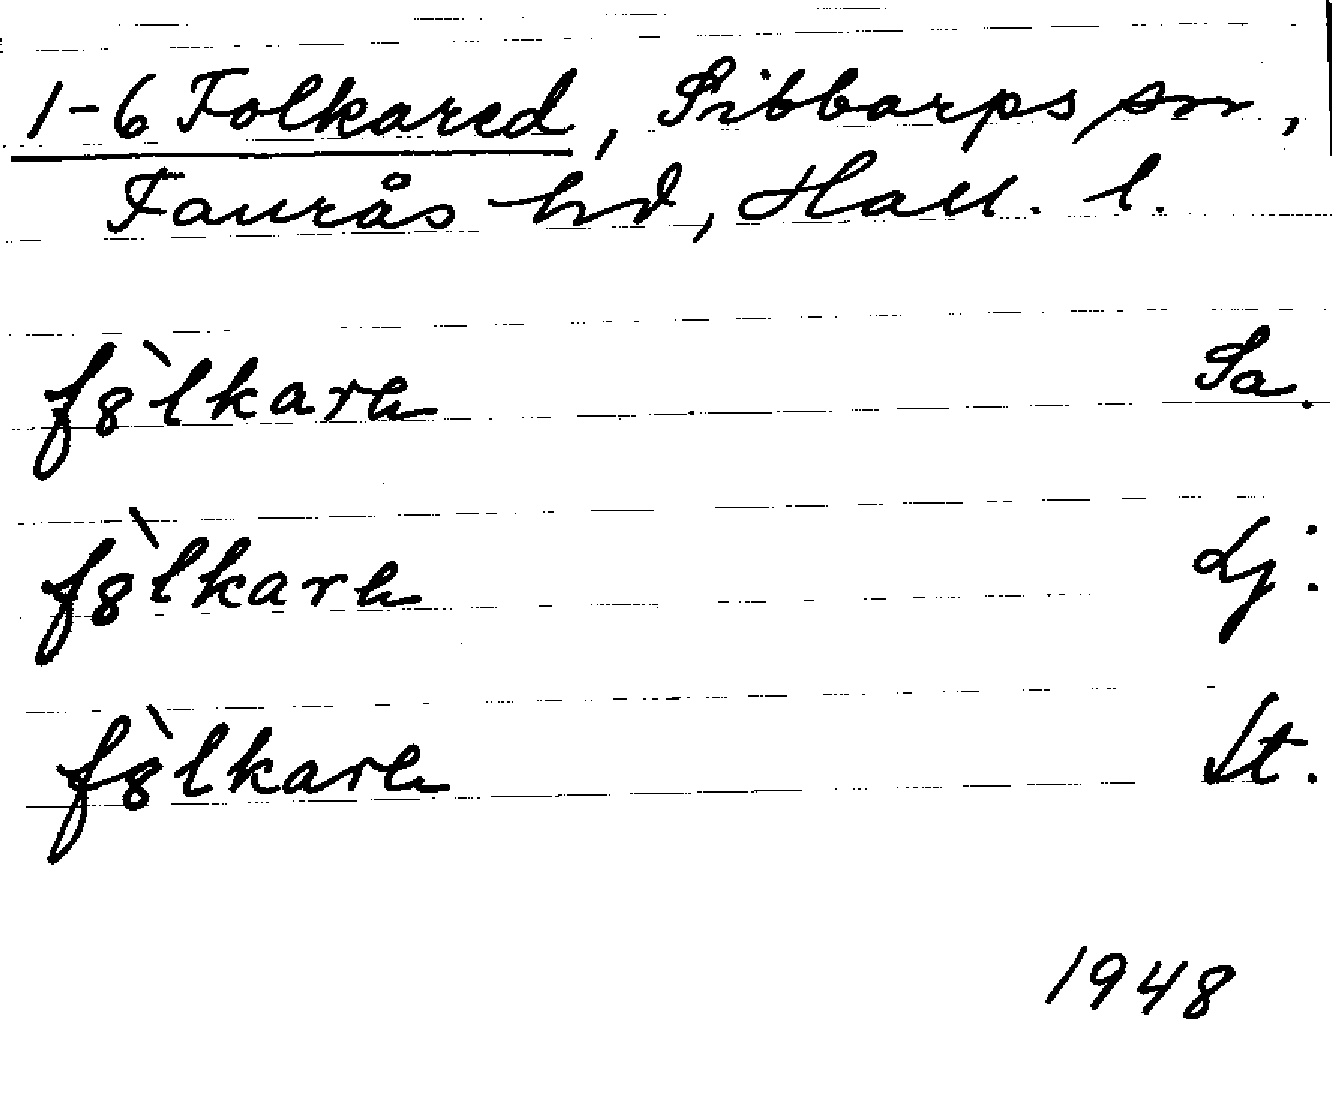 1-6 Folkared, Sibbarps sn,
Faurås hd, Hall. l.
fȣ̀lkarə Sa.
fȣ̀lkarə Lj.
fȣ̀lkarə St.
1948